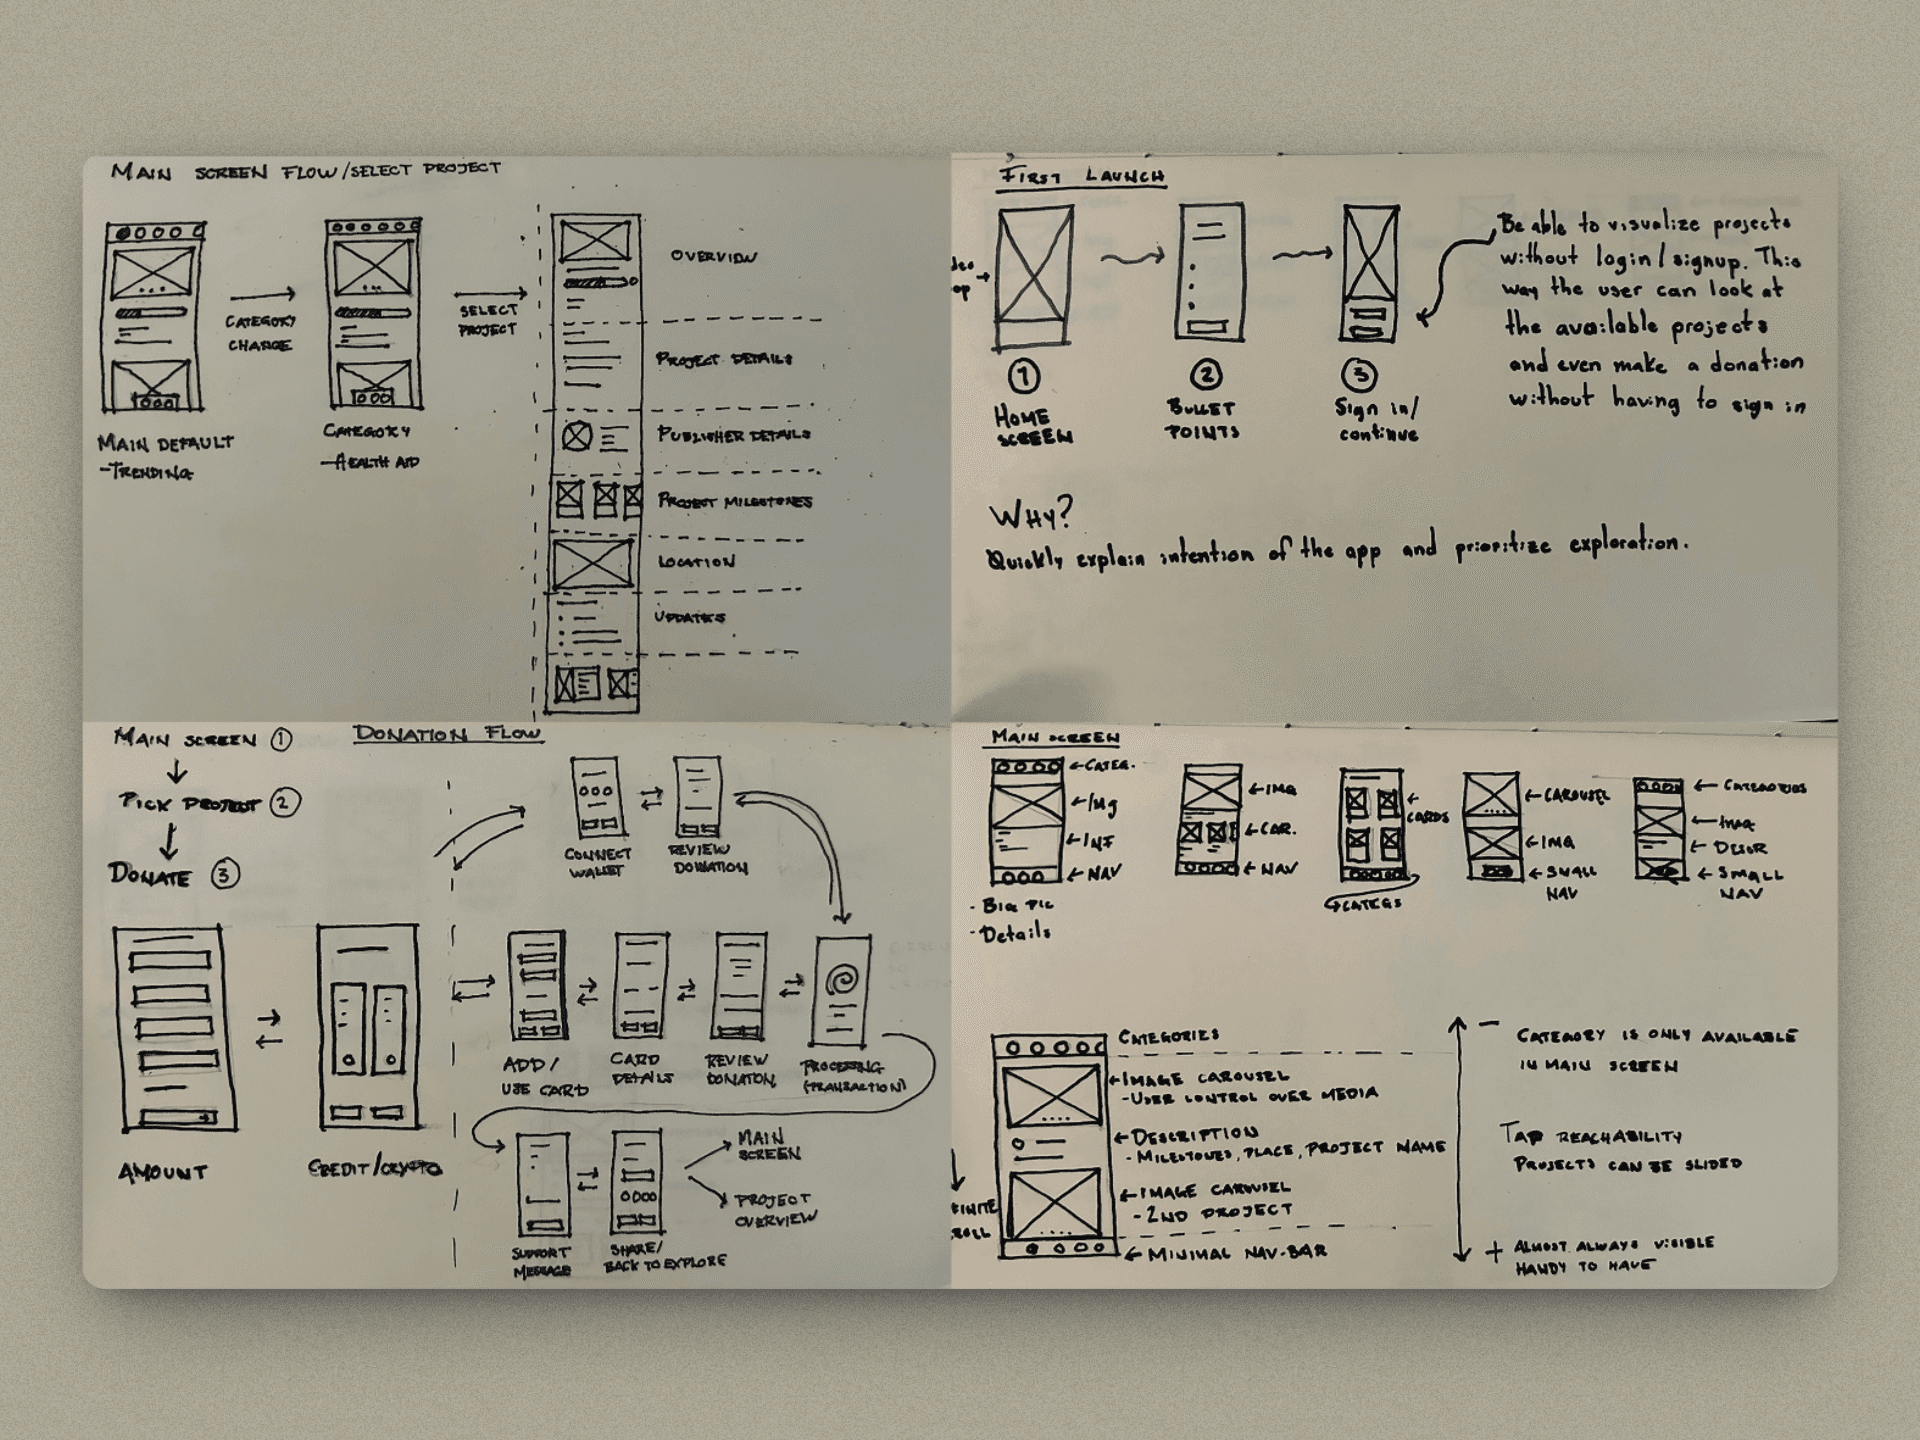 MAIN SCREEN FLOW/SELECT PROJECT
CATEGORY
CHANGE
SELECT
PROJECT
MAIN DEFAULT
-TRENDING
CATEGORY
-HEALTH AID
OVERVIEW
PROJECT DETAILS
PUBLISHER DETAILS
PROJECT MILESTONES
LOCATION
UPDATES
FIRST LAUNCH
1
HOME
SCREEN
2
BULLET
POINTS
3
Sign in/
continue
Be able to visualize projects
without login/signup. This
way the user can look at
the available projects
and even make a donation
without having to sign in
WHY?
Quickly explain intention of the app and prioritize exploration.
MAIN SCREEN 1
PICK PROJECT 2
DONATE 3
DONATION FLOW
CONNECT
WALLET
REVIEW
DONATION
AMOUNT
CREDIT/CRYPTO
ADD/
USE CARD
CARD
DETAILS
REVIEW
DONATION
PROCESSING
(TRANSACTION)
SUPPORT
MESSAGE
SHARE/
BACK TO EXPLORE
MAIN
SCREEN
PROJECT
OVERVIEW
MAIN SCREEN
CATEG.
IMG
INF
NAV
- BIG PIC
- Details
IMG
CAR.
NAV
CARDS
CATEGS
CAROUSEL
IMG
SMALL
NAV
CATEGORIES
IMG
DESCR
SMALL
NAV
CATEGORIES
IMAGE CAROUSEL
- USER CONTROL OVER MEDIA
DESCRIPTION
- MILESTONES, PLACE, PROJECT NAME
IMAGE CAROUSEL
- 2ND PROJECT
MINIMAL NAV-BAR
- CATEGORY IS ONLY AVAILABLE
IN MAIN SCREEN
TAP REACHABILITY
PROJECTS CAN BE SLIDED
+ ALMOST ALWAYS VISIBLE
HANDY TO HAVE